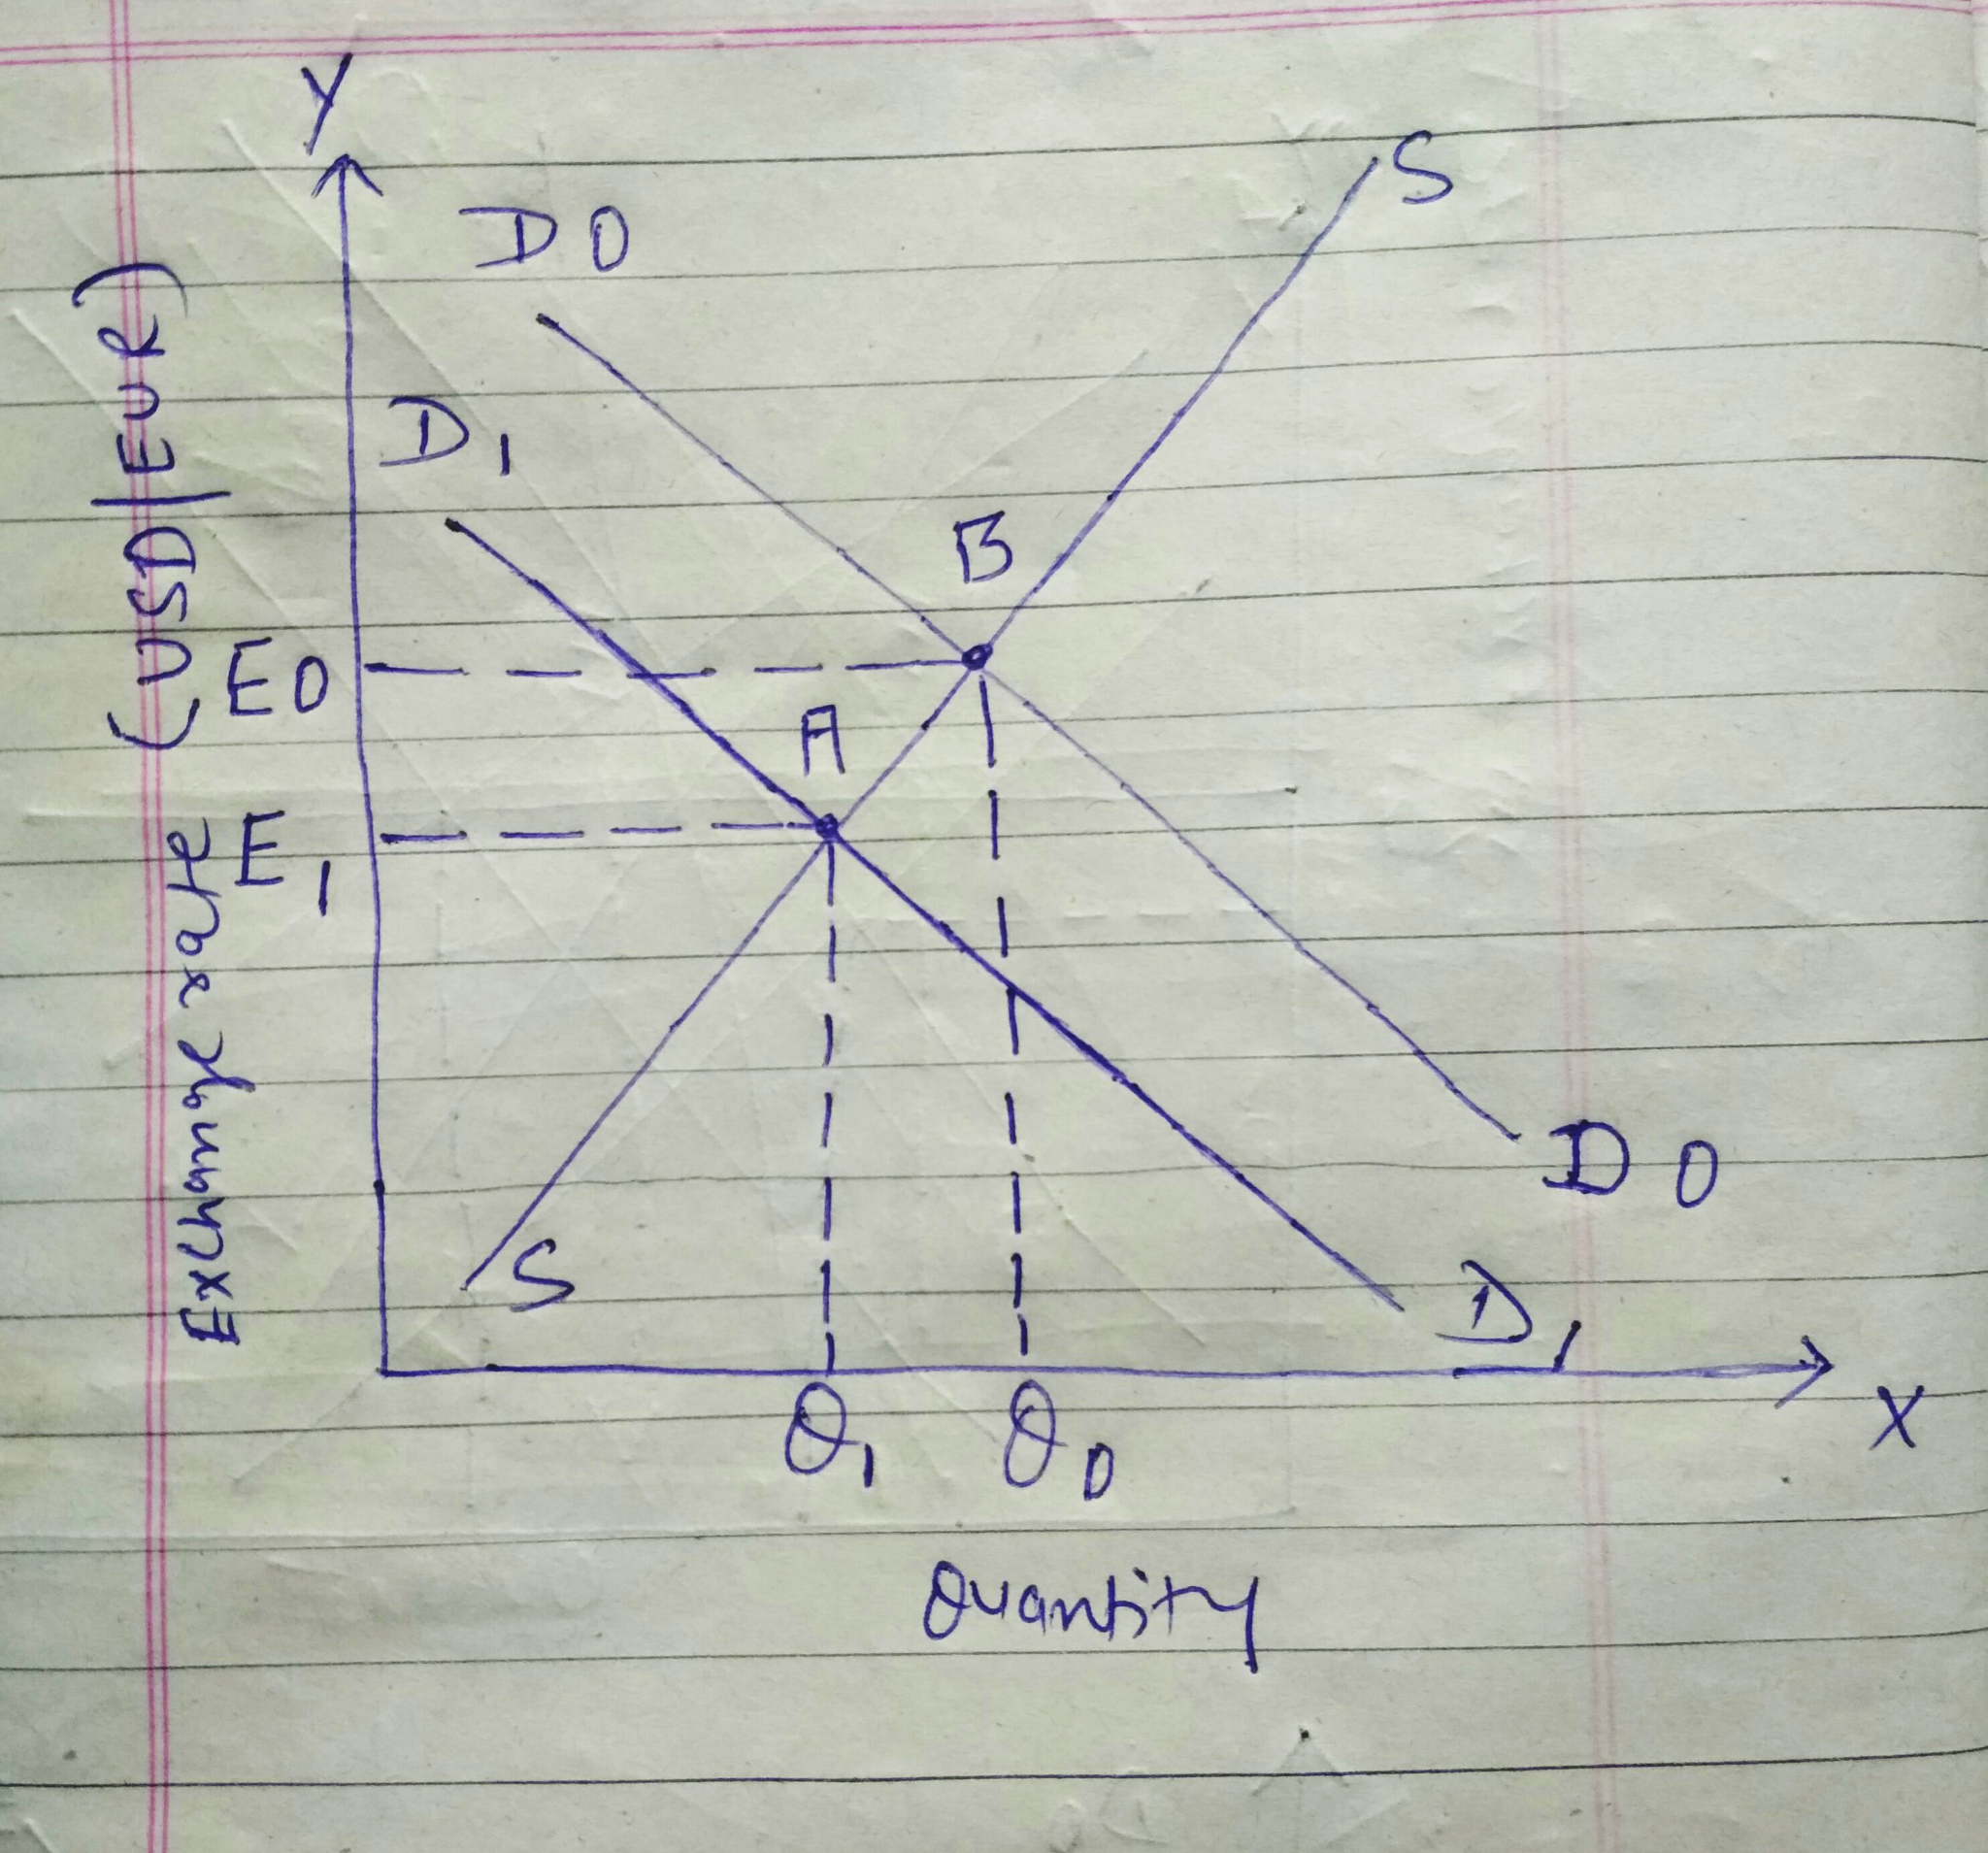 Y
S
D0
D1
B
E0
A
E1
Exchange rate (USD/EUR)
D0
S
D1
X
Q1
Q0
Quantity